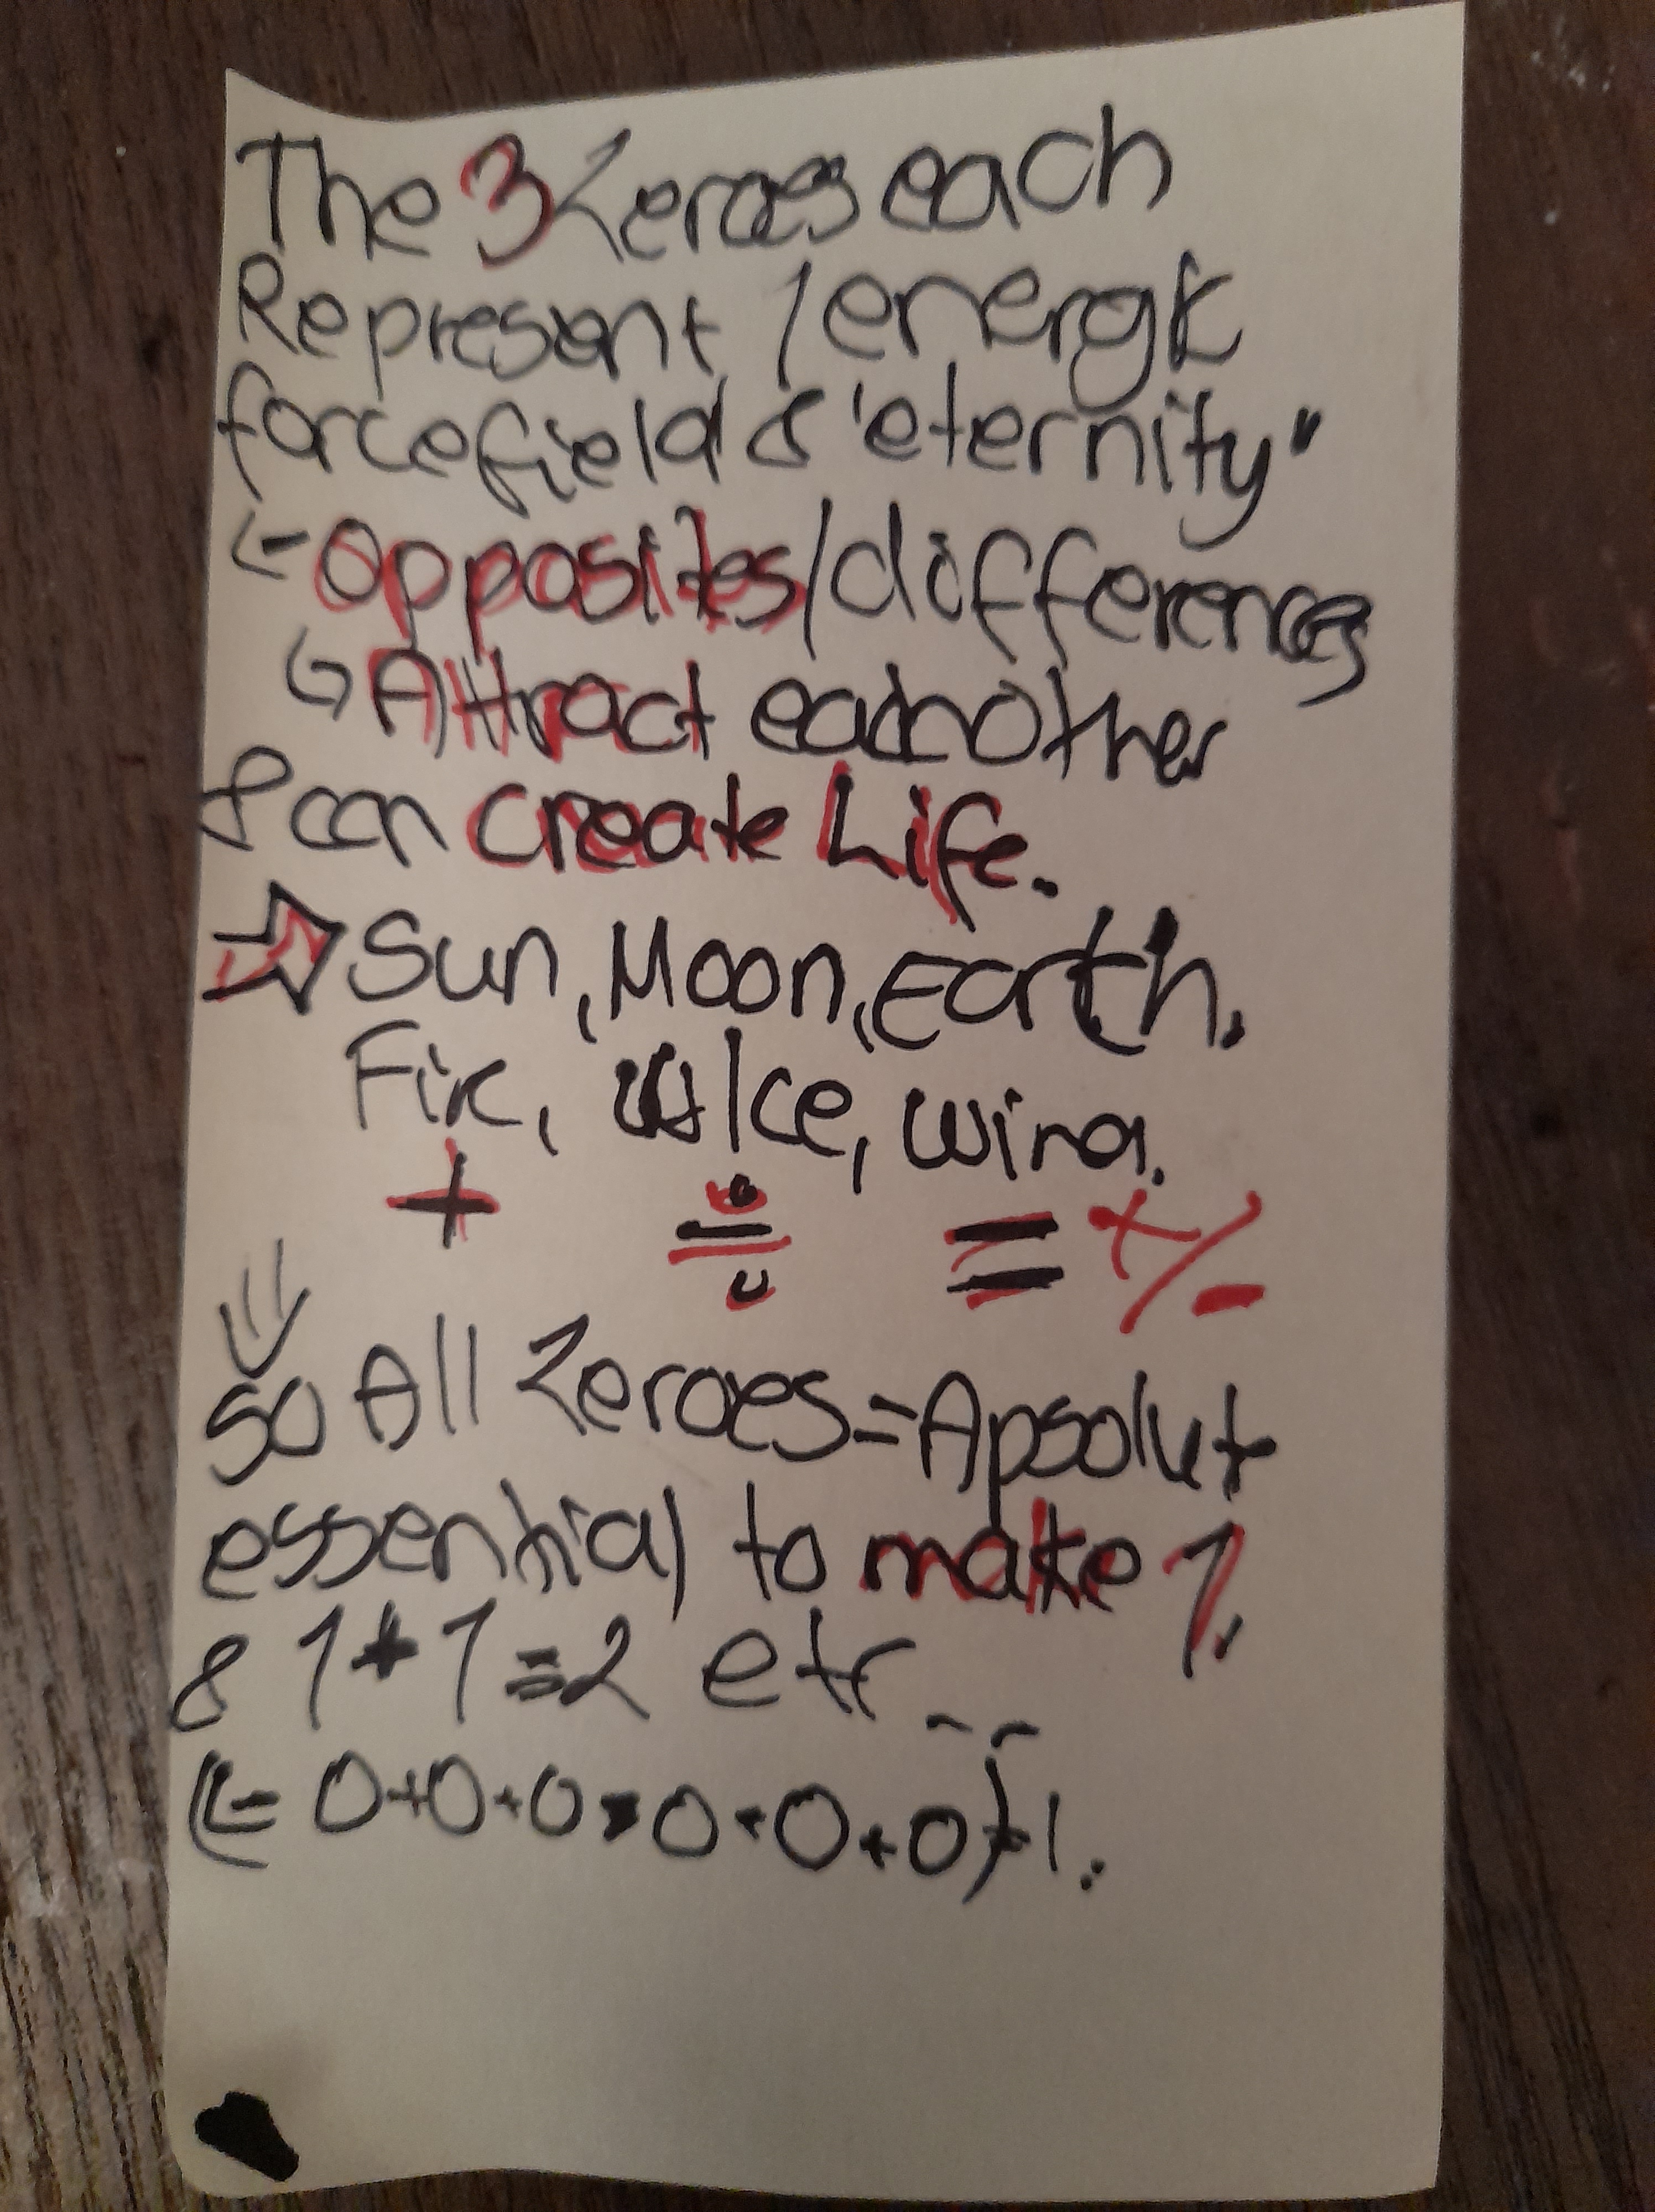 The 3 Zeroes each
Represent 1 energic
forcefield & "eternity"
← Opposites/differences
↳ Attract eachother
& can create Life.
⇒ Sun, Moon, Earth.
Fire, Ice, Wind.
+ ÷ = +/-
⇓
So All Zeroes = Apsolut
essential to make 1.
& 1 + 1 = 2 etc --
0+0+0 0+0+0 1.